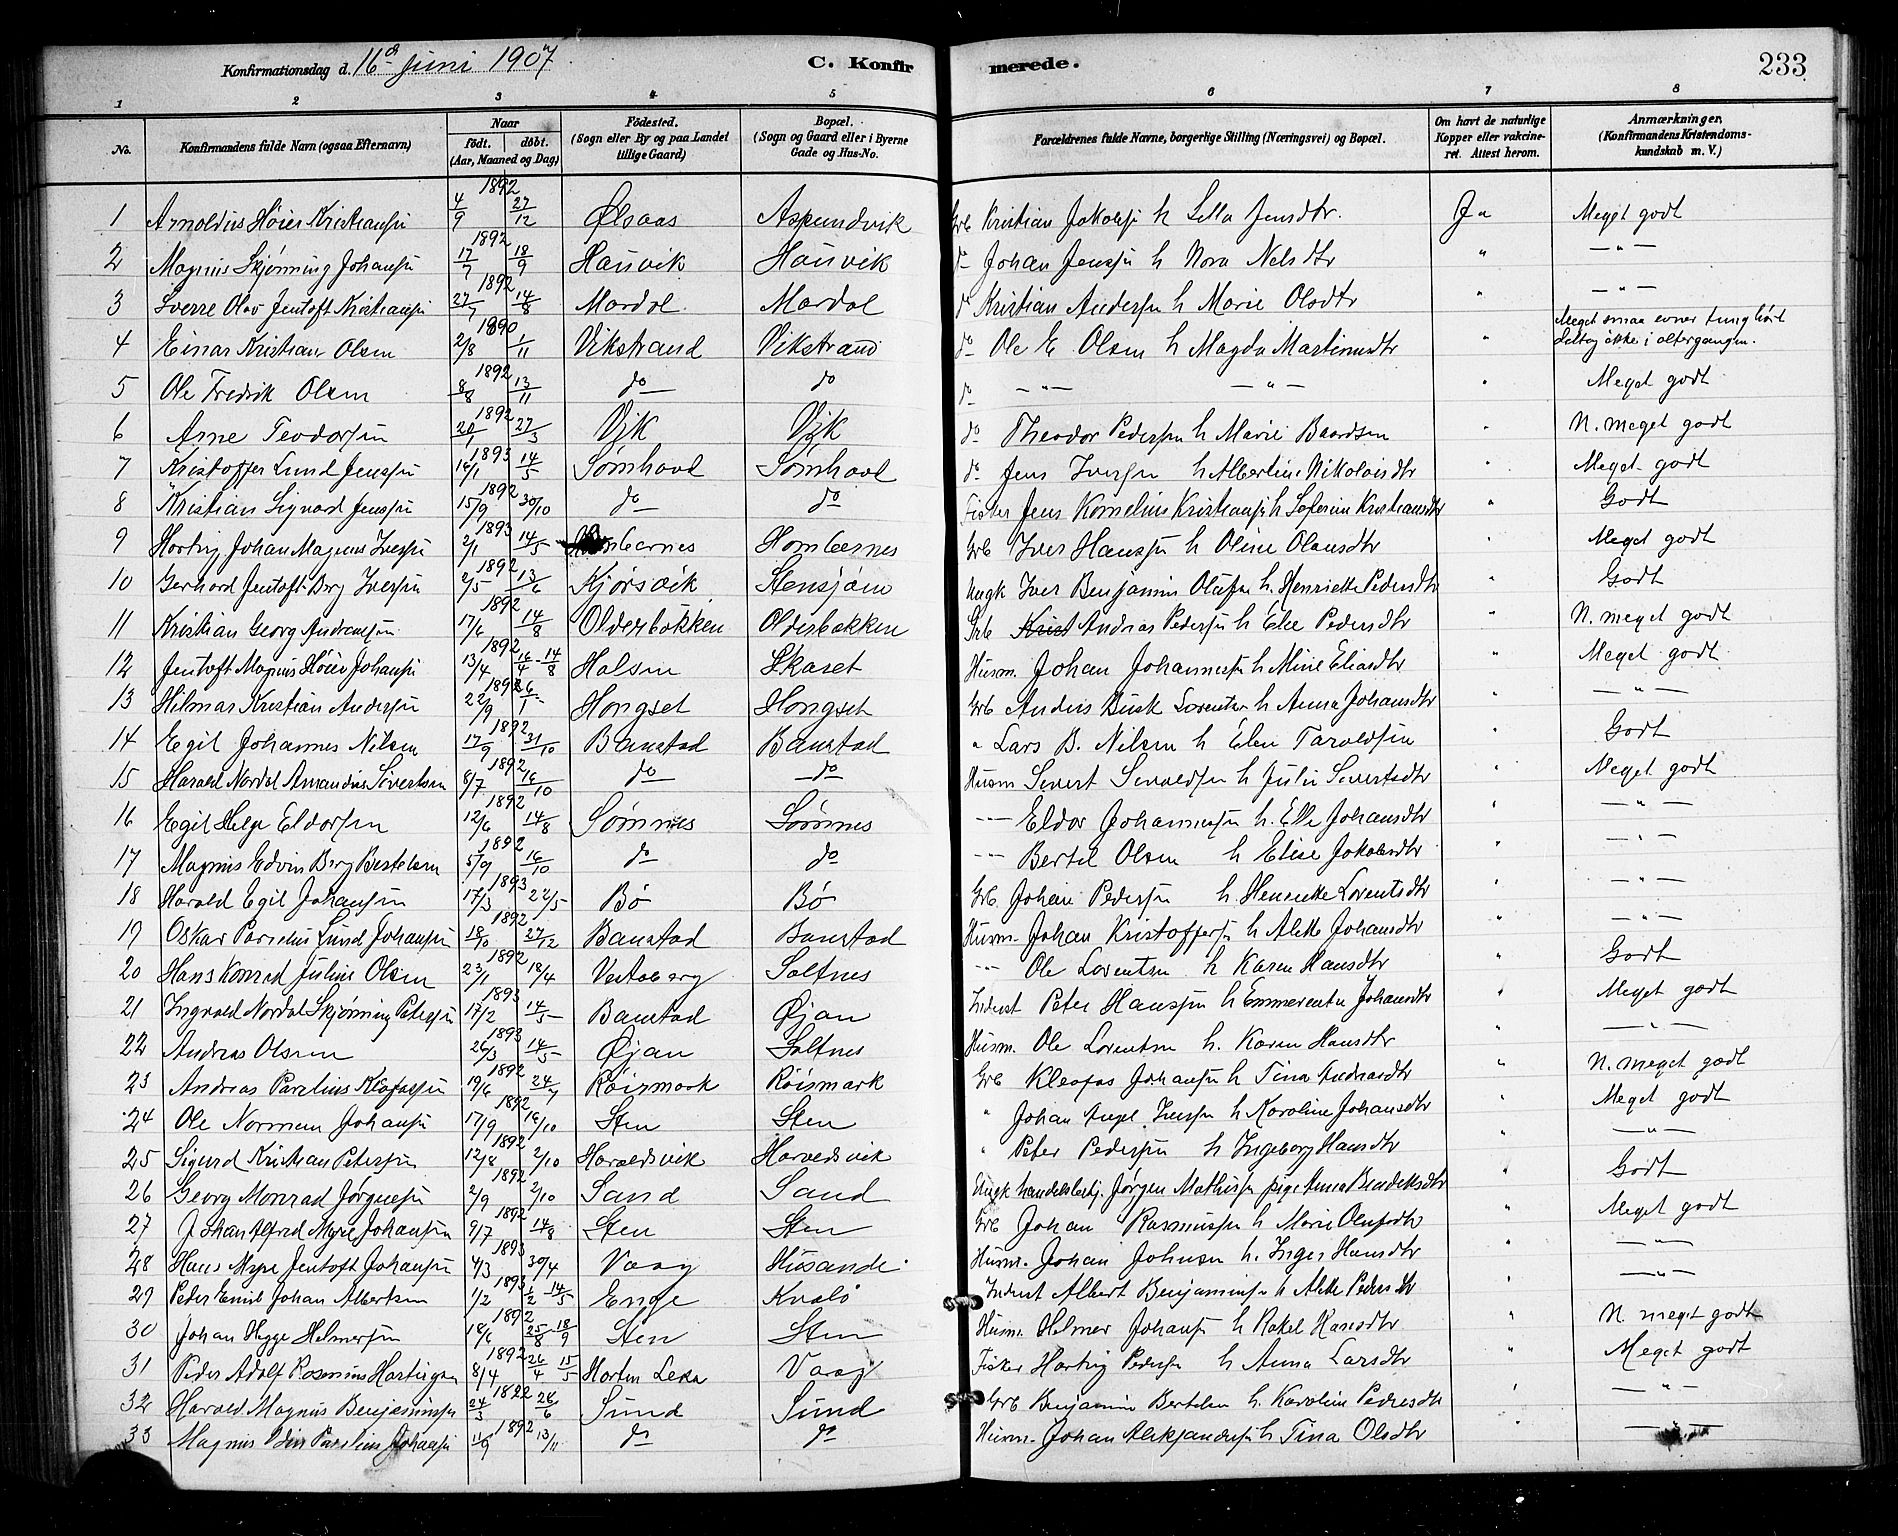 Konfirmationsdag d. 16de juni 1907
C. Konfirmerede.
233
1 2 3 4 5 6 7 8
No.
Konfirmandens fulde Navn (ogsaa Efternavn)
Naar født. døbt. (Aar, Maaned og Dag)
Fødested. (Sogn eller By og paa Landet tillige Gaard)
Bopæl. (Sogn og Gaard eller i Byerne Gade og Hus-No.
Forældrenes fulde Navne, borgerlige Stilling (Næringsvei) og Bopæl.
Om havt de naturlige Kopper eller vakcineret. Attest herom.
Anmærkninger, (Konfirmandens Kristendomskundskab m. V.)
1 Arnoldus Høier Kristiansen 1892 4/9 27/12 Ølsaas Aspundvik Grb Kristian Jakobsen h Jensdtr. Ja Meget godt
2 Magnus Skjønning Johansen 1892 17/7 18/9 Hausvik Hausvik do Johan Jensen h Nora Nelsdtr " — " —
3 Sverre Olav Jentoft Kristiansen 1892 27/7 14/8 Mardal Mardal do Kristian Andersen h Marie Olsdtr " — " —
4 Einar Kristian Olsen 1890 2/8 1/11 Vikstrand Vikstrand do Ole E. Olsen h Magda Martinusdtr " Meget smaa evner tunghørt deltog ikke i altergangen.
5 Ole Fredrik Olsen 1892 8/8 13/11 do do do — " — — " — " Meget godt
6 Arne Teodorsen 1892 20/1 27/3 Vik Vik do Theodor Pedersen h Marie Baardsen " N. meget godt
7 Kristoffer Lund Jenssen 1893 16/1 14/5 Sømhovd Sømhovd do Jens Iversen h Albertine Nikolaisdtr " Meget godt
8 Kristian Sigvard Jenssen 1892 15/9 30/10 do do Fisker Jens Kornelius Kristiansen h Seferine Kristiansdtr " Godt
9 Hartvig Johan Magnus Iversen 1893 2/1 14/5 Hombornes Hombornes Grb Iver Hanssen h Oline Olausdtr " Meget godt
10 Gerhard Jentoft Berg Iversen 1892 2/5 13/6 Kjørsvik Stensjøen Ungk Iver Benjamin Olufsen h. Henriette Pedersdtr " Godt
11 Kristian Georg Andreassen 1892 17/6 14/8 Olderbakken Olderbakken Andreas Pedersen h Elee Pedersdtr " N. meget godt
12 Jentoft Magnus Høier Johansen 1892 13/4 16/4 - 14/8 Halsen Skaret Husm. Johan Johannessen h Mine Eliasdtr " Meget godt
13 Hilmar Kristian Andersen 1892 22/9 6/1 Hongset Hongset Grb Anders Busk Lorentsen h Anna Johansdtr " — " —
14 Egil Johannes Nilsen 1892 17/9 31/10 Baustad Baustad " Lars B. Nilsen h Elen Taraldsen " Godt
15 Harald Nordal Amandus Sivertsen 1892 8/7 16/10 do do Husm Sivert Sivaldsen h Julie Sivertsdtr " Meget godt
16 Egil Helge Eldorsen 1892 12/6 14/8 Sømnes Sømnes — " — Eldor Johannessen h. Elle Johansdtr " — " —
17 Magnus Edvin Berg Bertelsen 1892 5/9 16/10 do do — " — Bertel Olsen h Elise Jakobsdtr " — " —
18 Harald Egil Johansen 1893 17/3 22/5 Bø Bø Grb Johan Pedersen h. Henrikke Lorentsdtr " — " —
19 Oskar Parelius Lund Johansen 1892 18/10 27/12 Baustad Baustad Husm. Johan Kristoffersen h Alette Johansdtr " — " —
20 Hans Konrad Julius Olsen 1892 23/1 18/4 Vestaberg Saltnes — " — Ole Lorentsen h Karen Hansdtr Godt
21 Ingvald Nordal Skjønning Petersen 1893 17/2 14/5 Baustad Øjan Inderst Peter Hanssen h Emmerentse Johansdtr " Meget godt
22 Andreas Olsen 1893 26/3 14/5 Øjan Saltnes Husm. Ole Lorentsen h. Karen Hansdtr " — " —
23 Andreas Parelius Kleofassen 1892 19/6 24/7 Røismark Røismark Grb Kleofas Johansen h Tina Andreasdtr " N. meget godt
24 Ole Normann Johansen 1892 17/9 16/10 Sten Sten " Johan Angel Iversen h Karoline Johansdtr " Meget godt
25 Sigurd Kristian Petersen 1892 12/8 2/10 Haraldsvik Harvedsvik " Peter Pedersen h Ingeborg Hansdtr " — " —
26 Georg Monrad Jørgensen 1892 2/9 2/10 Sand Sand Ungk handelsbetj. Jørgen Mathisen pige Anna Bendiksdtr " Godt
27 Johan Alfred Myre Johansen 1892 9/7 14/8 Sten Sten Grb Johan Rasmussen h Marie Olufsdtr " Meget godt
28 Hans Myre Jentoft Johansen 1893 4/3 30/4 Vaag Husande Husm. Johan Johnsen h. Inger Hansdtr " — " —
29 Peder Emil Johan Albertsen 1893 1/2 1/2 - 14/5 Enge Kvalø Inderst Albert Benjaminsen h Alette Pedersdtr " — " —
30 Johan Hegge Helmersen 1892 18/6 25/8 - 18/9 Sten Sten Husm. Helmer Johansen h Rakel Hansdtr " N. meget godt
31 Peder Adolf Rosenius Hartvigsen 1892 8/4 26/4 15/5 Horten Leka Vaag Fisker Hartvig Pedersen h Anna Larsdtr " Meget godt
32 Harald Magnus Benjaminsen 1892 24/3 26/6 Sund Sund Grb Benjamin Bertelsen h. Karoline Pedersdtr " — " —
33 Magnus Odin Parelius Johansen 1892 11/9 13/11 do do Husm. Johan Aleksandersen h Tina Olsdtr "